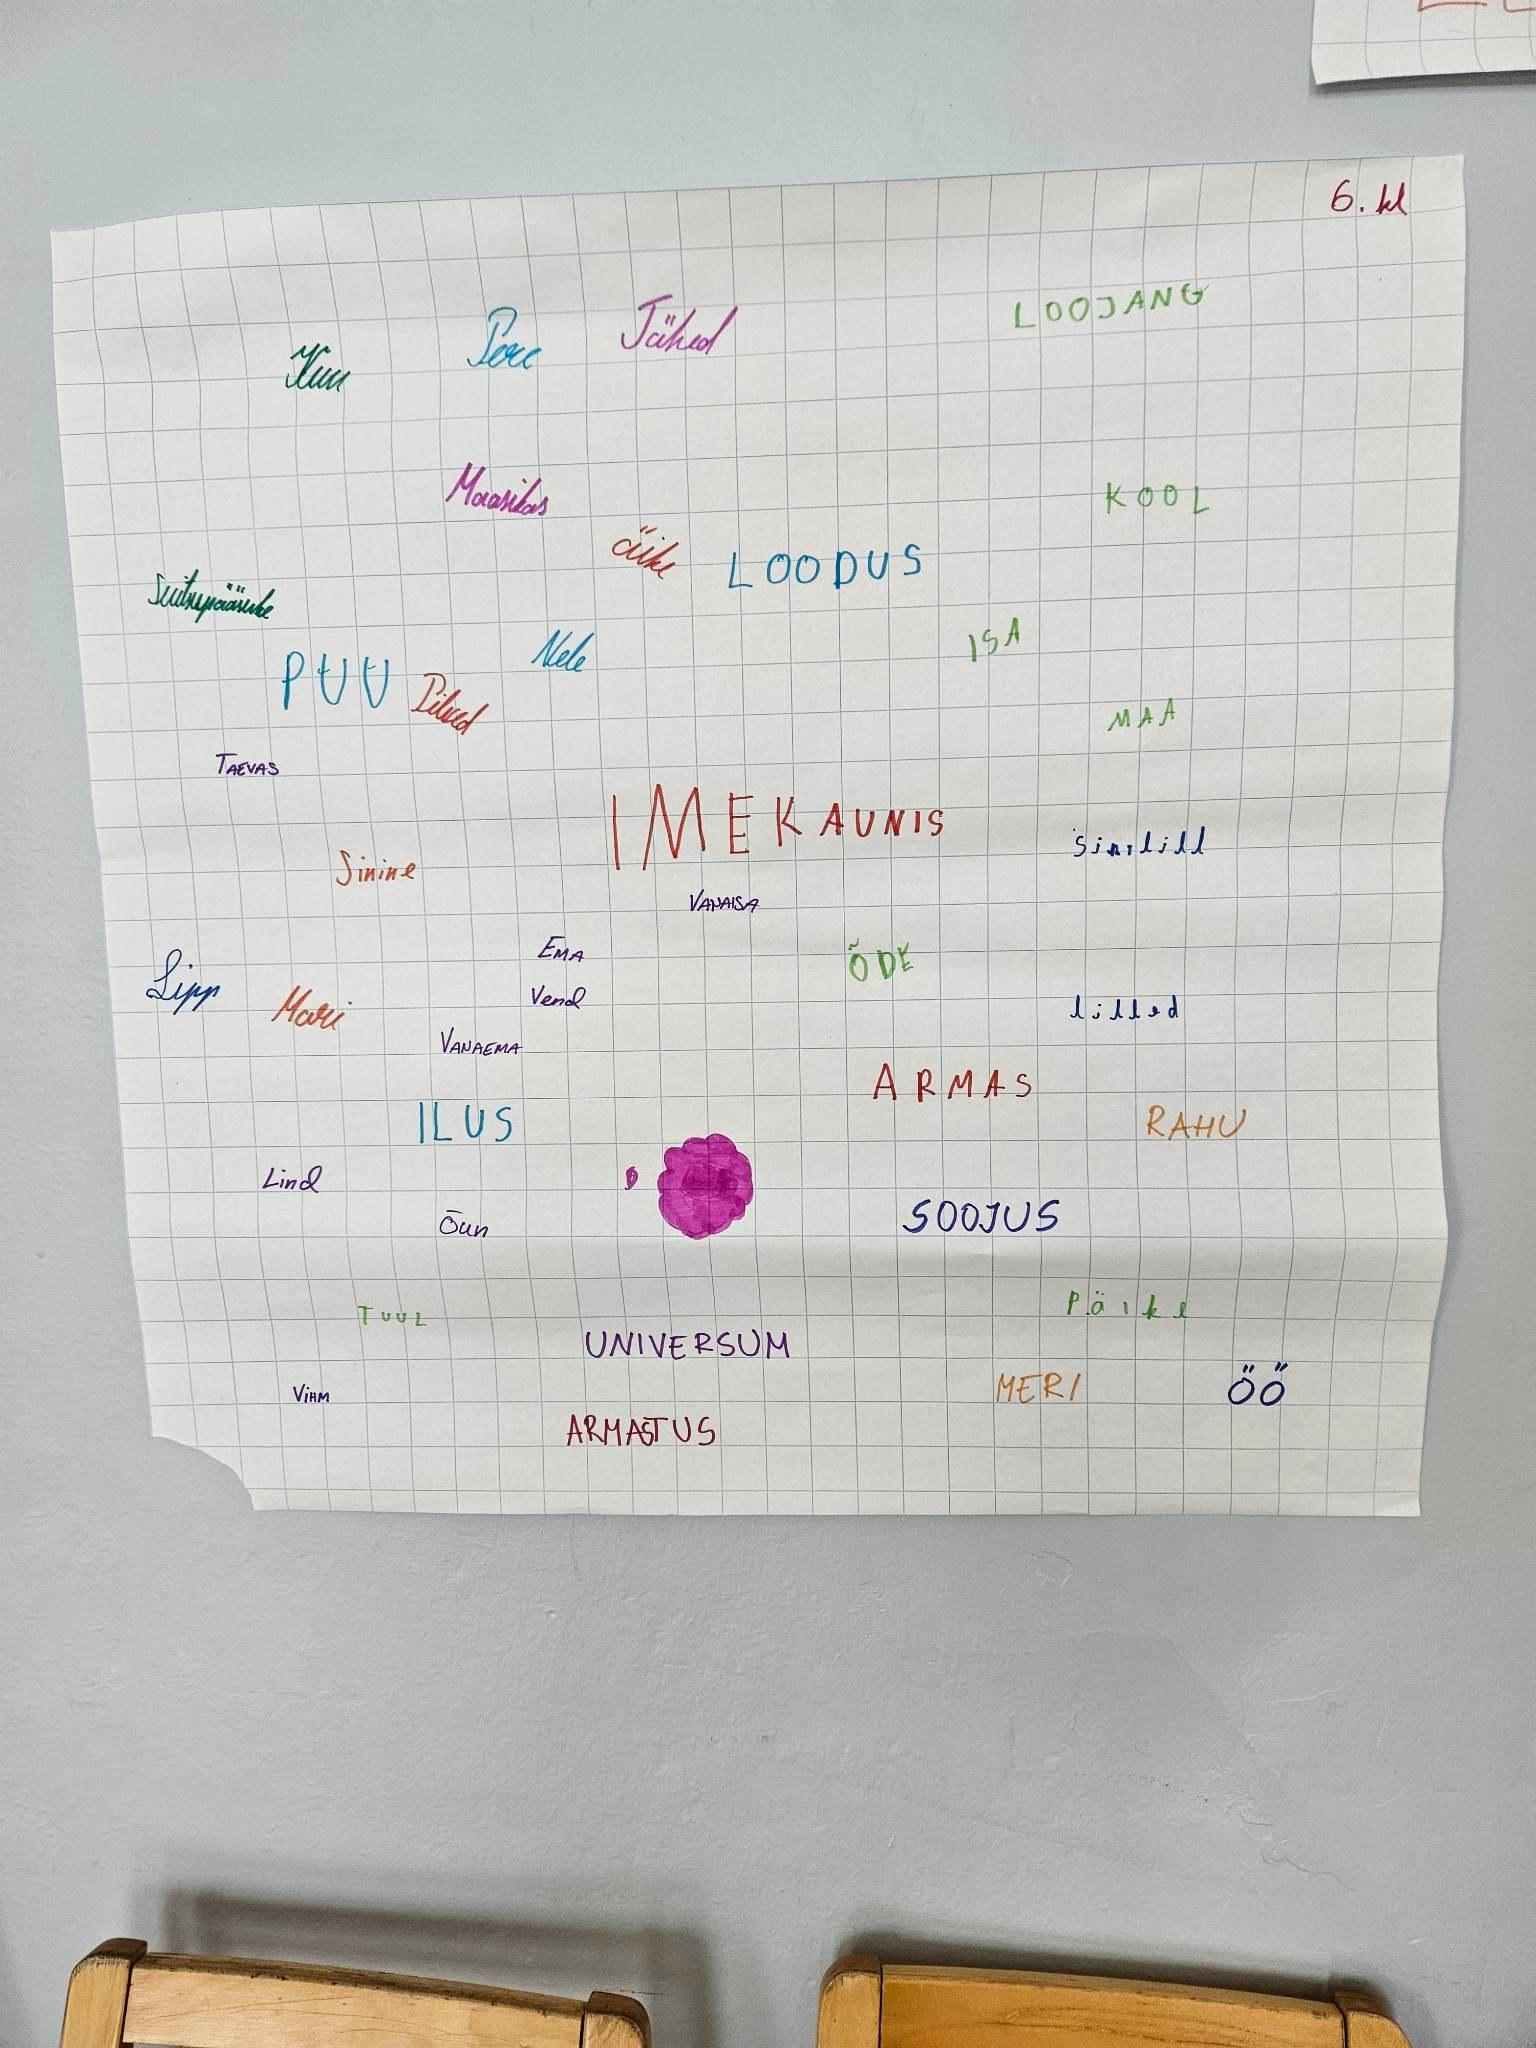 6. kl
LOOJANG
Kuu
Pere
Tähed
Maasikas
KOOL
äike
LOODUS
Suitsupääsuke
ISA
PUU
Pilved
Nele
MAA
TAEVAS
IMEKAUNIS
Sinine
sinilill
VANAISA
EMA
ÕDE
Lipp
Mari
Vend
lilled
VANAEMA
ARMAS
ILUS
RAHU
Lind
SOOJUS
Õun
TUUL
Päike
UNIVERSUM
VIHM
MERI
ÖÖ
ARMASTUS